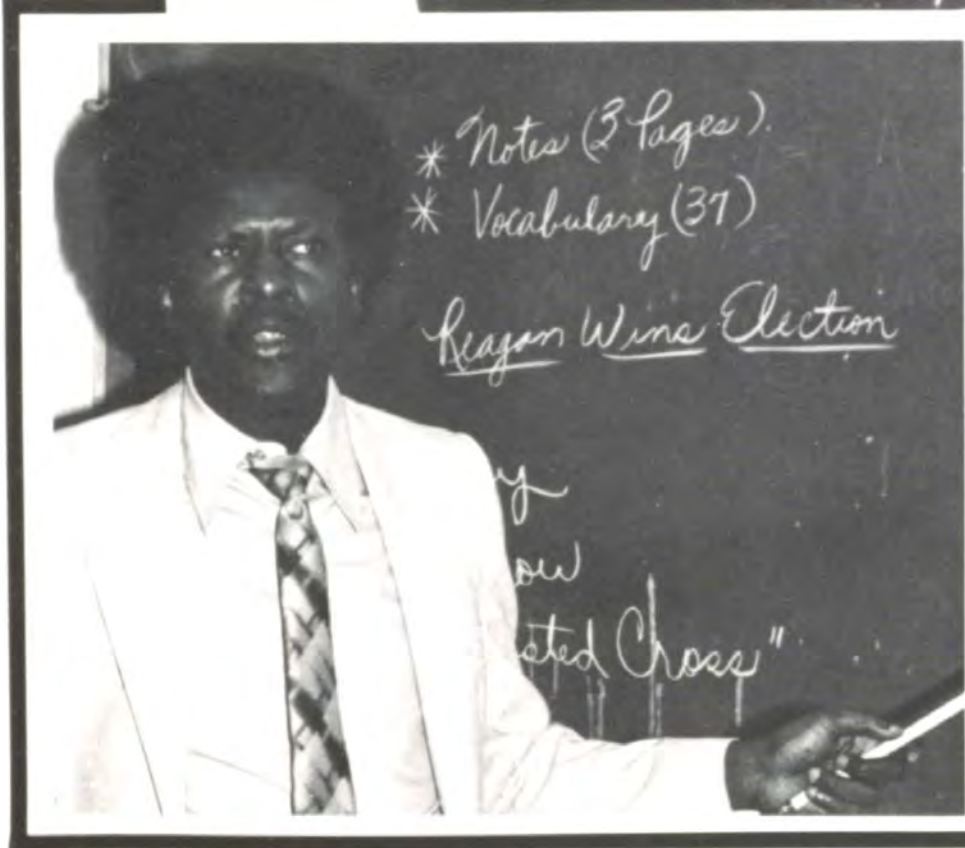 * Notes (3 Pages).
* Vocabulary (37)
Reagan Wins Election
y
ow
sted Cross"